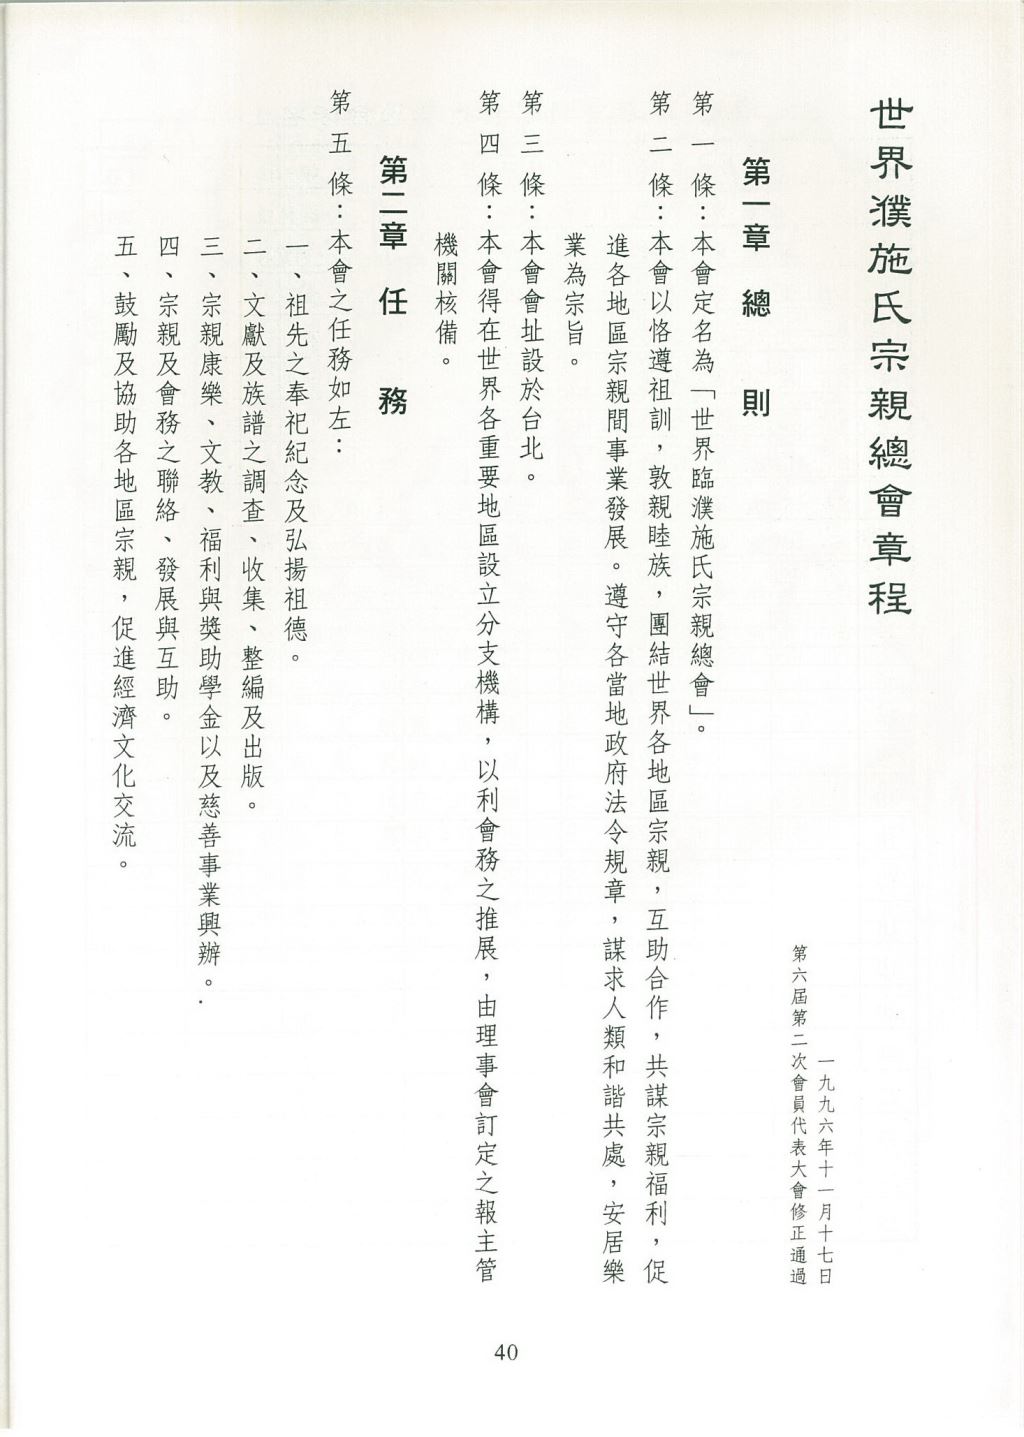 世界濮施氏宗親總會章程
一九九六年十一月十七日
第六屆第二次會員代表大會修正通過
第一章 總 則
第一條：本會定名為「世界臨濮施氏宗親總會」。
第二條：本會以恪遵祖訓，敦親睦族，團結世界各地區宗親，互助合作，共謀宗親福利，促
進各地區宗親間事業發展。遵守各當地政府法令規章，謀求人類和諧共處，安居樂
業為宗旨。
第三條：本會會址設於台北。
第四條：本會得在世界各重要地區設立分支機構，以利會務之推展，由理事會訂定之報主管
機關核備。
第二章 任 務
第五條：本會之任務如左：
一、祖先之奉祀紀念及弘揚祖德。
二、文獻及族譜之調查、收集、整編及出版。
三、宗親康樂、文教、福利與獎助學金以及慈善事業興辦。
四、宗親及會務之聯絡、發展與互助。
五、鼓勵及協助各地區宗親，促進經濟文化交流。
40